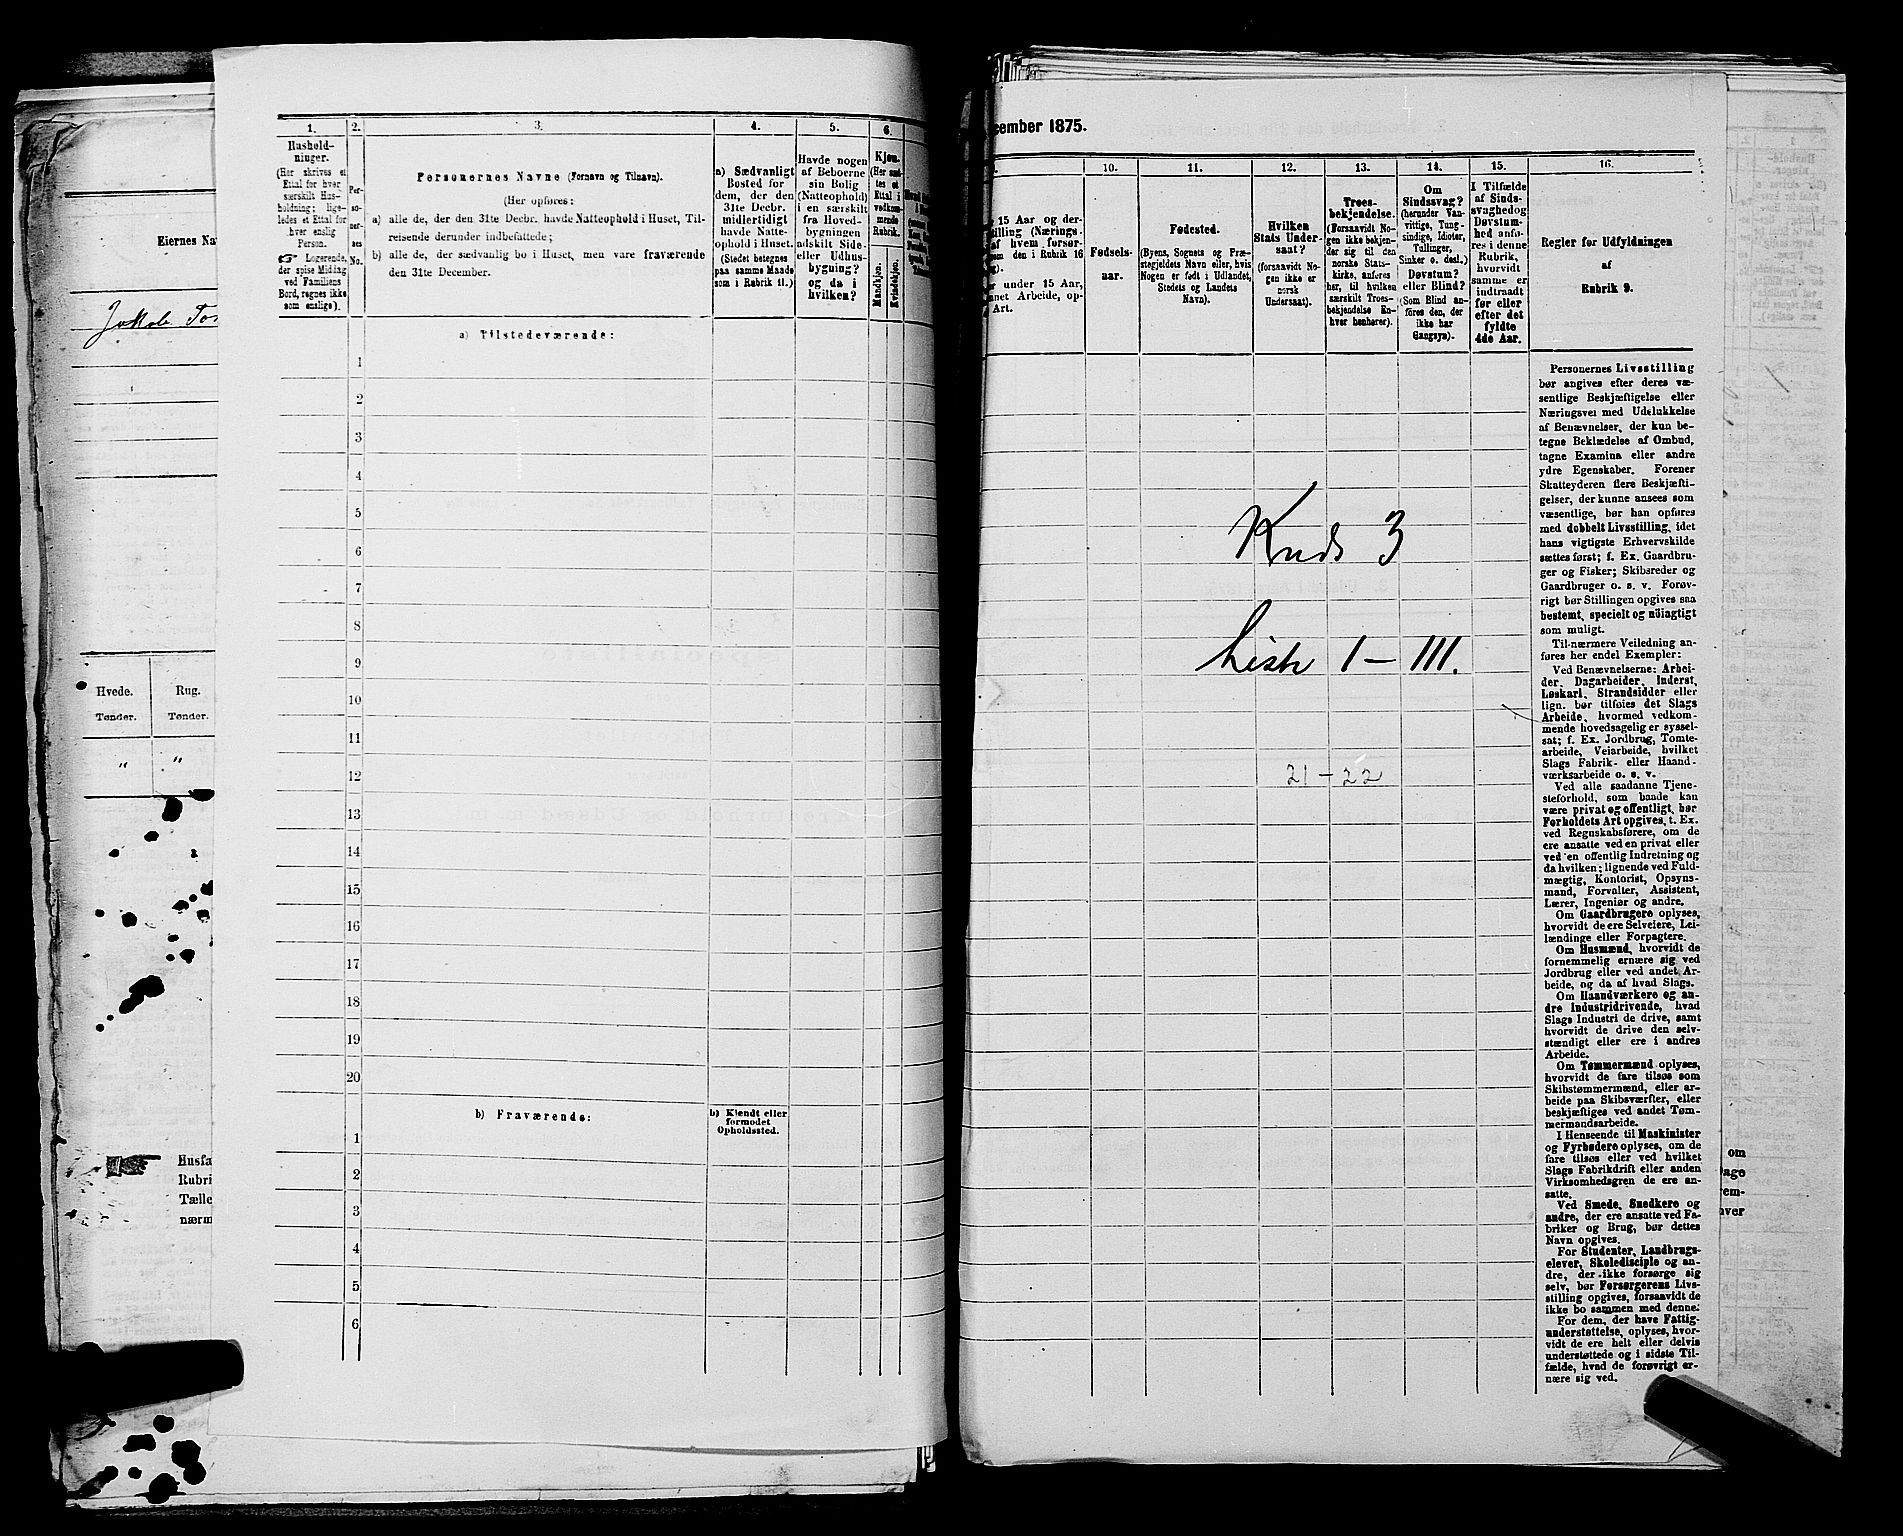 Eiernes Na
Jakob To
Hvede.
Tønder.
Rug.
Tønder.
"
"
Husfa
Rubri
Tælle
nærm
1.
Hushold-
ninger.
(Her skrives et
Ettal for hver
særskilt Hus-
holdning; lige-
ledes et Ettal for
hver enslig
Person.
☞ Logerende,
der spise Middag
ved Familiens
Bord, regnes ikke
som enslige).
2.
Per-
so-
ner-
nes
No.
3.
Personernes Navne (Fornavn og Tilnavn).
(Her opføres:
a) alle de, der den 31te Decbr. havde Natteophold i Huset, Til-
reisende derunder indbefattede;
b) alle de, der sædvanlig bo i Huset, men vare fraværende
den 31te December.
4.
a) Sædvanligt
Bosted for
dem, der den
31te Decbr.
midlertidigt
havde Natte-
ophold i Huset.
(Stedet betegnes
paa samme Maade
som i Rubrik 11.)
5.
Havde nogen
af Beboerne
sin Bolig
(Natteophold)
i en særskilt
fra Hoved-
bygningen
adskilt Side-
eller Udhus-
bygning?
og da i
hvilken?
6.
Kjøn.
(Her sæt-
tes et
Ettal i
vedkom-
mende
Rubrik.
Mandkjøn.
Kvindekjøn.
a) Tilstedeværende:
1
2
3
4
5
6
7
8
9
10
11
12
13
14
15
16
17
18
19
20
b) Fraværende:
b) Kjendt eller
formodet
Opholdssted.
1
2
3
4
5
6
cember 1875.
15 Aar og der-
illing (Nærings-
af hvem forsør-
den i Rubrik 16
under 15 Aar,
net Arbeide, op-
Art.
10.
Fødsels-
aar.
11.
Fødested.
(Byens, Sognets og Præ-
stegjeldets Navn eller, hvis
Nogen er født i Udlandet,
Stedets og Landets
Navn).
12.
Hvilken
Stats Under-
saat?
(forsaavidt No-
gen ikke er
norsk
Undersaat).
13.
Troes-
bekjendelse.
(Forsaavidt No-
gen ikke bekjen-
der sig til den
norske Stats-
kirke, anføres
her, til hvilken
særskilt Troes-
bekjendelse En-
hver henhører).
14.
Om
Sindssvag?
(herunder Van-
vittige, Tung-
sindige, Idioter,
Tullinger,
Sinker o. desl.)
Døvstum?
eller Blind?
(Som Blind an-
føres den, der
ikke har
Gangsyn).
15.
I Tilfælde
af Sinds-
svaghed og
Døvstum-
hed anfø-
res i denne
Rubrik,
hvorvidt
samme er
indtraadt
før eller
efter det
fyldte
4de Aar.
16.
Regler for Udfyldningen
af
Rubrik 9.
Personernes Livsstilling
bør angives efter deres væ-
sentlige Beskjæftigelse eller
Næringsvei med Udelukkelse
af Benævnelser, der kun be-
tegne Beklædelse af Ombud,
tagne Examina eller andre
ydre Egenskaber. Forener
Skatteyderen flere Beskjæfti-
gelser, der kunne ansees som
væsentlige, bør han opføres
med dobbelt Livsstilling, idet
hans vigtigste Erhvervskilde
sættes først; f. Ex. Gaardbru-
ger og Fisker; Skibsreder og
Gaardbruger o. s. v. Forøv-
rigt bør Stillingen opgives saa
bestemt, specielt og nöiagtigt
som muligt.
Til nærmere Veiledning an-
føres her endel Exempler:
Ved Benævnelserne: Arbei-
der, Dagarbeider, Inderst,
Løskarl, Strandsidder eller
lign. bør tilføies det Slags
Arbeide, hvormed vedkom-
mende hovedsagelig er syssel-
sat; f. Ex. Jordbrug, Tomte-
arbeide, Veiarbeide, hvilket
Slags Fabrik- eller Haand-
værksarbeide o. s. v.
Ved alle saadanne Tjene-
steforhold, som baade kan
være privat og offentligt, bør
Forholdets Art opgives, t. Ex.
ved Regnskabsførere, om de
ere ansatte ved en privat eller
ved en offentlig Indretning og
da hvilken; lignende ved Fuld-
mægtig, Kontorist, Opsyns-
mand, Forvalter, Assistent,
Lærer, Ingeniør og andre.
Om Gaardbrugere oplyses,
hvorvidt de ere Selveiere, Lei-
lændinge eller Forpagtere.
Om Husmænd, hvorvidt de
fornemmelig ernære sig ved
Jordbrug eller ved andet Ar-
beide, og da af hvad Slags.
Om Haandværkere og an-
dre industridrivende, hvad
Slags Industri de drive, samt
hvorvidt de drive den selv-
stændigt eller ere i andres
Arbeide.
Om Tømmermænd oplyses,
hvorvidt de fare tilsøs som
Skibstømmermænd, eller ar-
beide paa Skibsværfter, eller
beskjæftiges ved andet Tøm-
mermandsarbeide.
I Henseende til Maskinister
og Fyrbødere oplyses, om de
fare tilsøs eller ved hvilket
Slags Fabrikdrift eller anden
Virksomhedsgren de ere an-
satte.
Ved Smede, Snedkere og
andre, der ere ansatte ved Fa-
briker og Brug, bør dettes
Navn opgives.
For Studenter, Landbrugs-
elever, Skoledisciple og an-
dre, der ikke forsørge sig
selv, bør Forsørgerens Livs-
stilling opgives, forsaavidt de
ikke bo sammen med denne.
For dem, der have Fattig-
understøttelse, oplyses, hvor-
vidt de ere helt eller delvis
understøttede og i sidste Til-
fælde, hvad de forøvrigt er-
nære sig ved.
Knds 3
Liste I – III.
21 – 22
om
age
rem-
hver